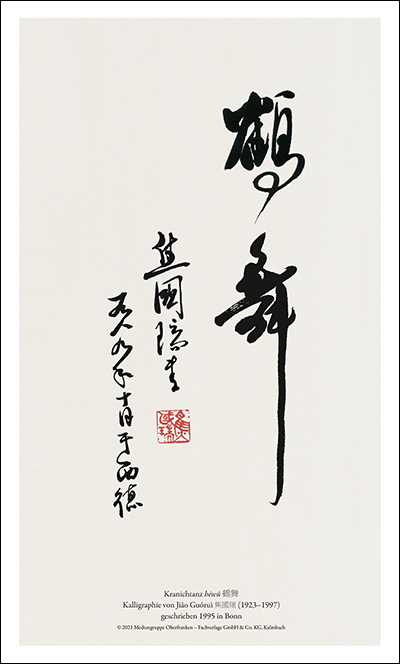 鶴舞
焦國瑞書
一九八九年十月于西德
Kranichtanz hèwǔ 鶴舞
Kalligraphie von Jiāo Guóruì 焦國瑞 (1923–1997)
geschrieben 1995 in Bonn
© 2021 Mediengruppe Oberfranken – Fachverlage GmbH & Co. KG, Kulmbach